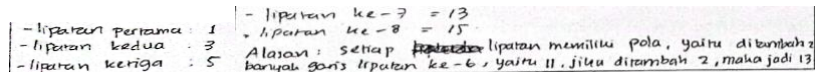 - lipatan pertama : 1
- lipatan kedua : 3
- lipatan ketiga : 5
- lipatan ke-7 = 13
- lipatan ke-8 = 15
Alasan : setiap lipatan memiliki pola, yaitu ditambah 2
banyak garis lipatan ke-6, yaitu 11. jika ditambah 2, maka jadi 13